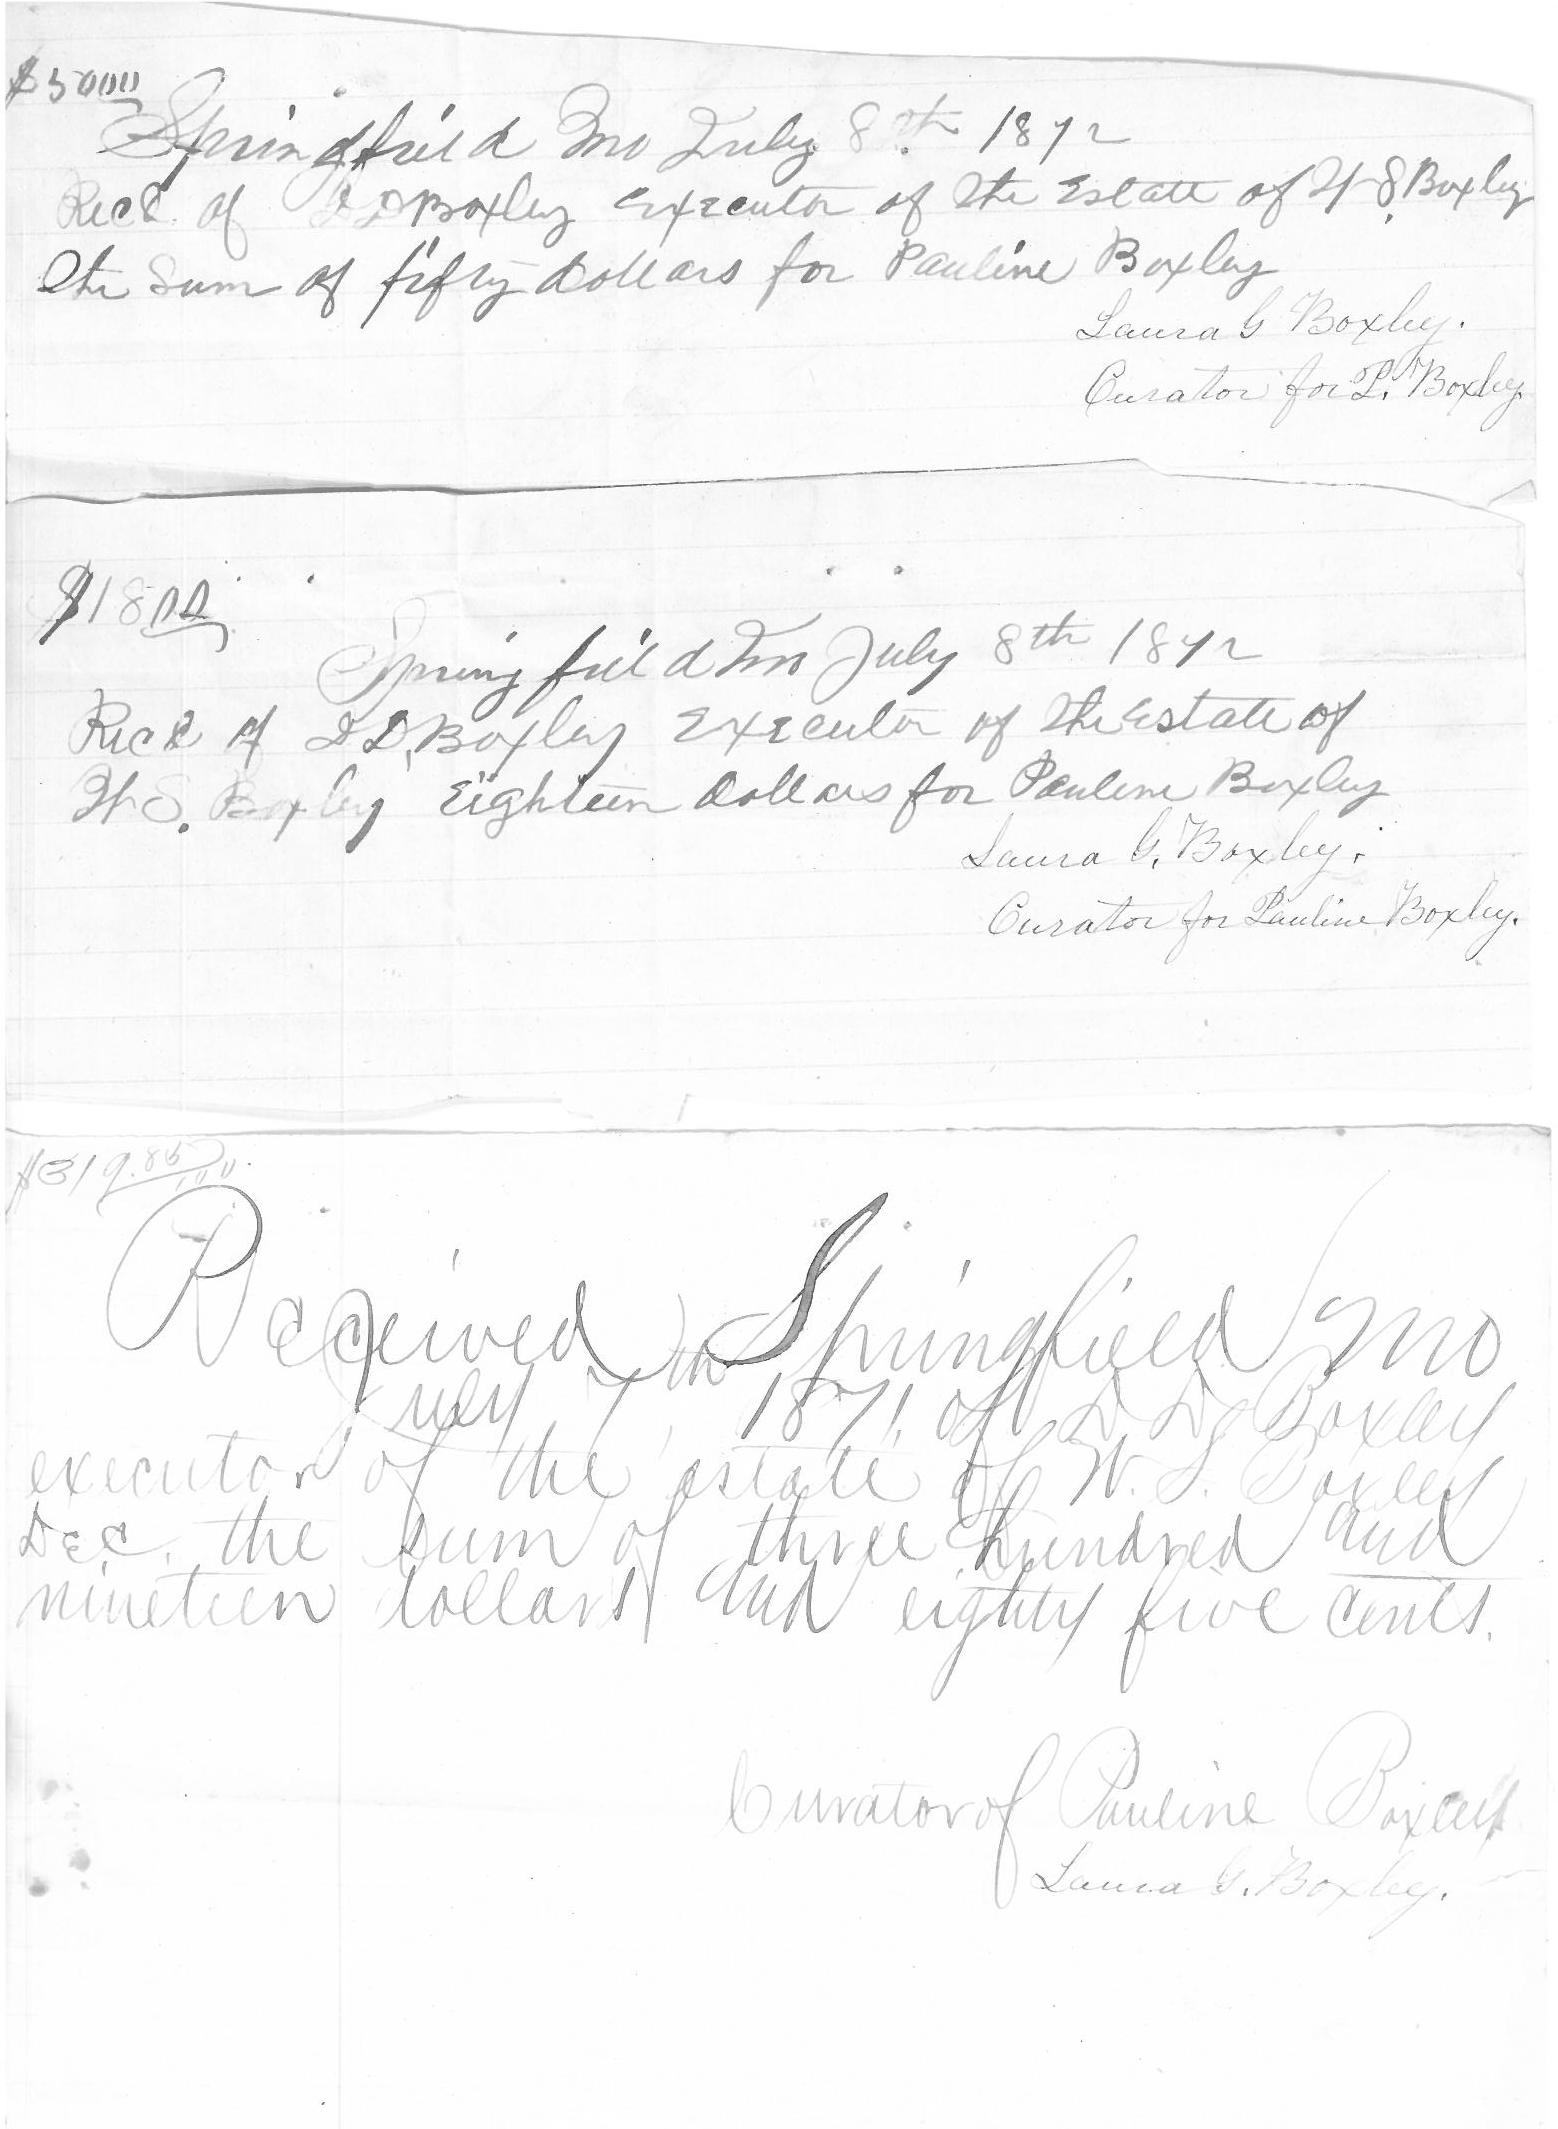 $50 00
Springfield Mo July 8th 1872
Recd of D D Boxley Executor of the Estate of W S. Boxley
the Sum of fifty dollars for Pauline Boxley
Laura G Boxley.
Curator for P. Boxley.
$18 00
Springfield Mo July 8th 1872
Recd of D D. Boxley Executor of the Estate of
W S. Boxley Eighteen dollars for Pauline Boxley
Laura G. Boxley.
Curator for Pauline Boxley.
$319.85
Received Springfield Mo
July 7th 1871. of D D Boxley
executor of the estate of W. S. Boxley
Dec. the sum of three hundred and
nineteen dollars and eighty five cents.
Curator of Pauline Boxley
Laura G. Boxley.